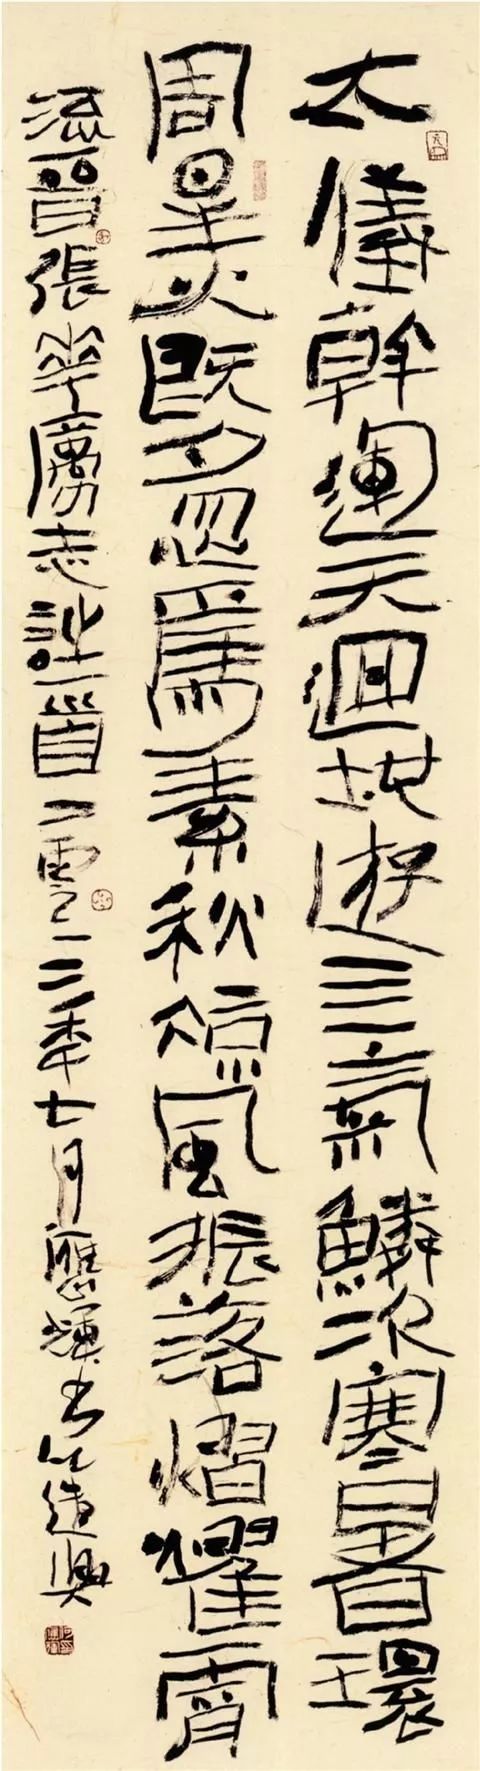 太儀幹運天迴地遊亖氣鱗次寒暑環
周星火既夕忽焉素秋凉風振落熠燿霄
流晉張華勵志詩一首二零二三年七月應輝書以遣興